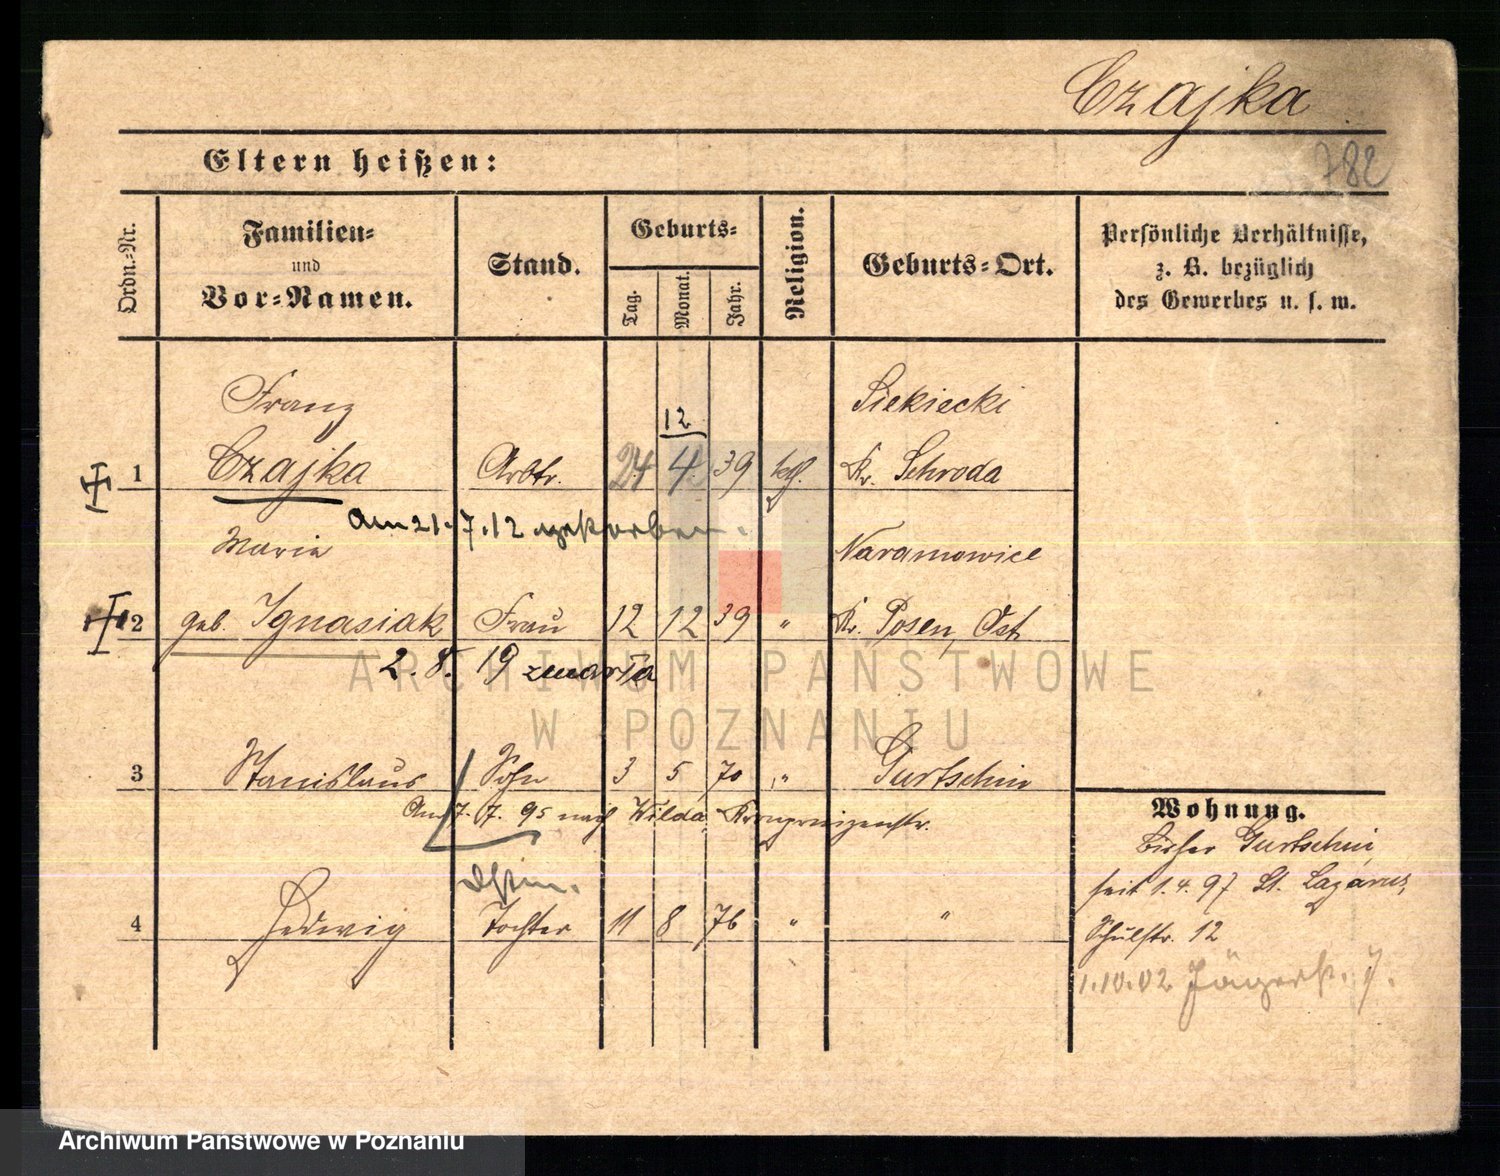 Czajka
Eltern heißen:
782
Ordn.-Nr.
Familien-
und
Vor-Namen.
Stand.
Geburts-
Tag.
Monat.
Jahr.
Religion.
Geburts-Ort.
Persönliche Verhältnisse,
z. B. bezüglich
des Gewerbes u. s. w.
Franz
Siekiecki
12
1 Czajka Arbtr. 24 4 39 kth. Kr. Schroda
am 21.7.12 gestorben.
Marie
Naramowice
2 geb. Ignasiak Frau 12 12 39 " Kr. Posen, Ost
2. 8. 19 zmarła
3 Stanislaus Sohn 3 5 70 " Gurtschin
Am 7. 7. 95 nach Wilda, Kronprinzenstr.
4 Hedwig Tochter 11 8 76 " "
Wohnung.
bisher Gurtschin
seit 1.4.97 St. Lazarus,
Schulstr. 12
1.10.02 Jägerstr. 7.
ARCHIWUM PAŃSTWOWE
W POZNANIU
Archiwum Państwowe w Poznaniu